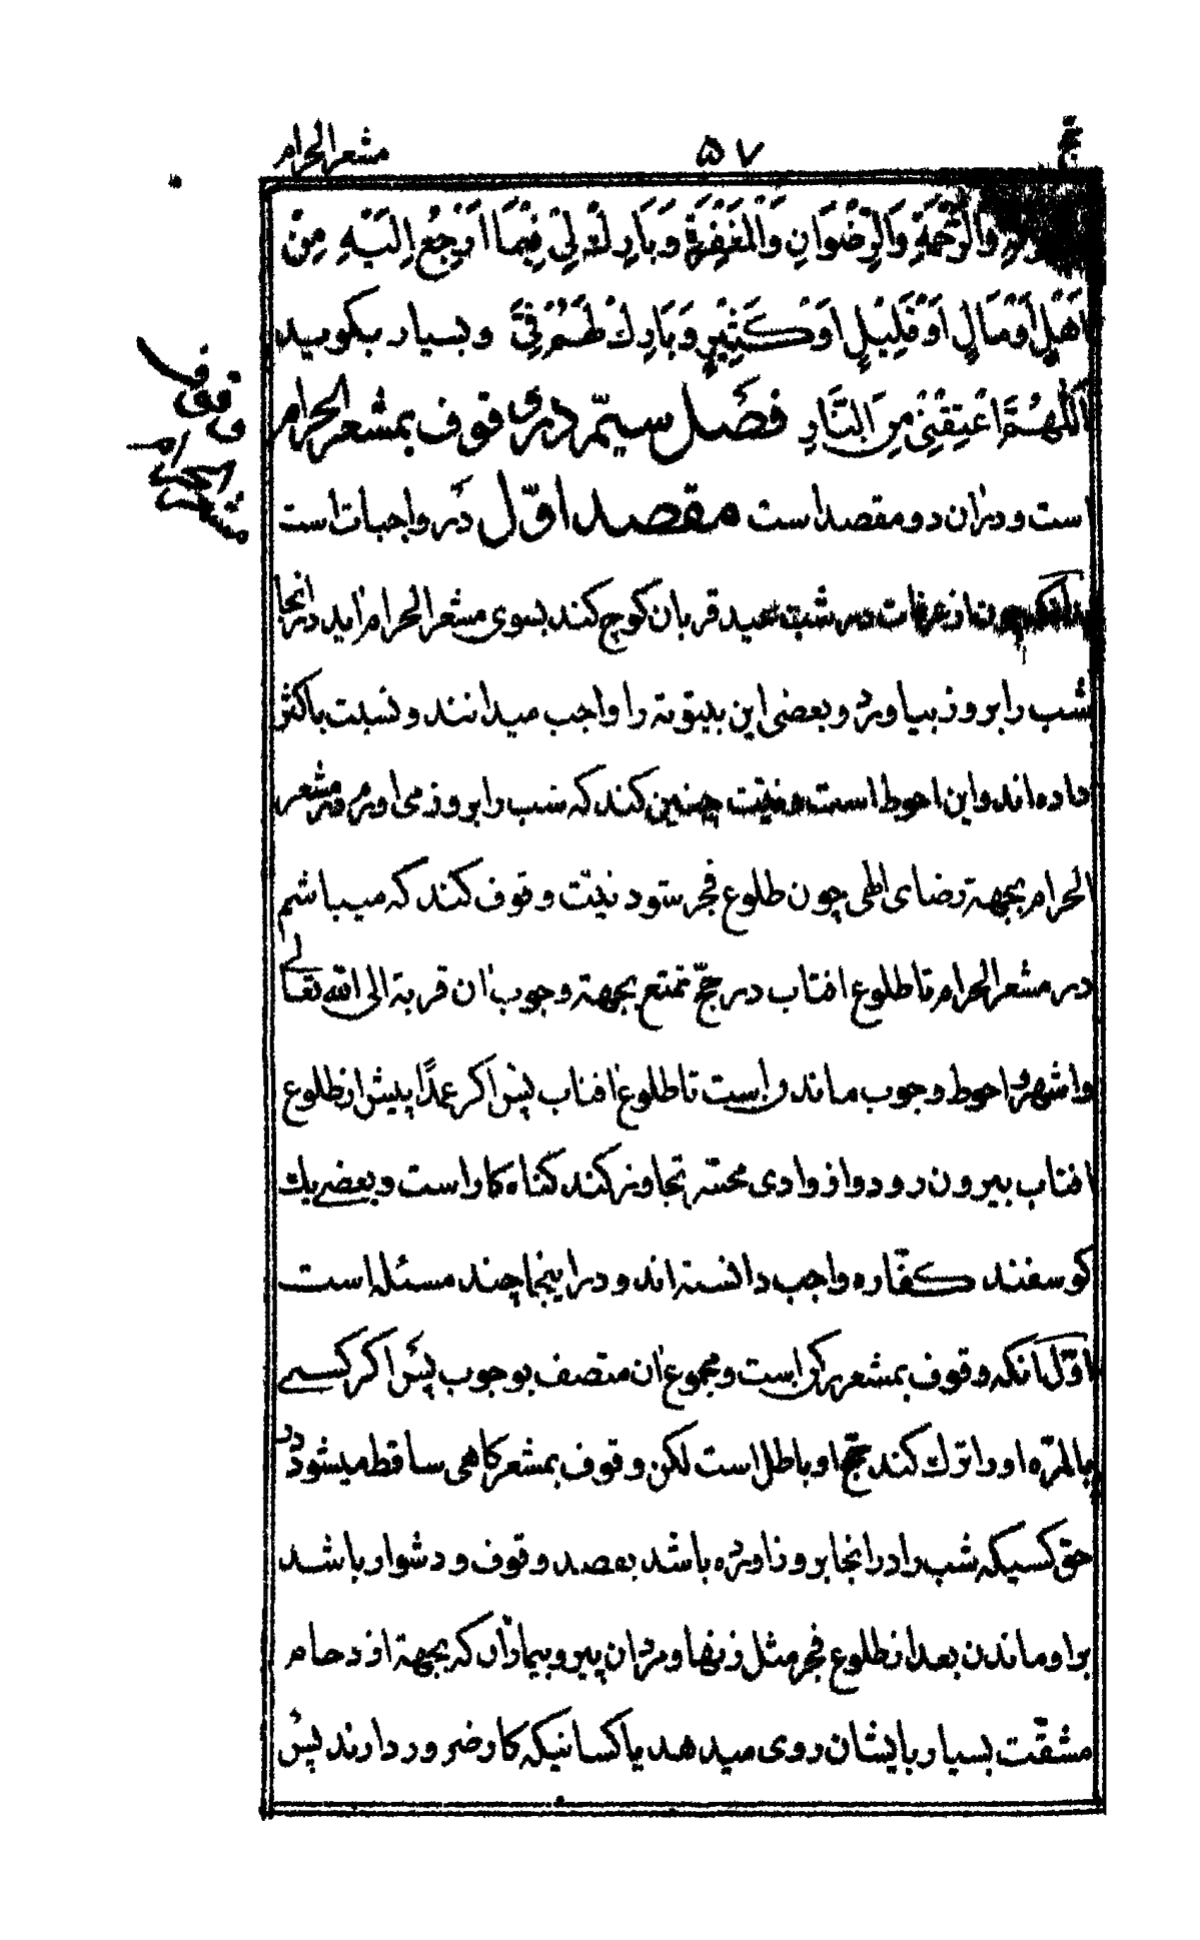 حج ۵۷ مشعر الحرام
وَالرَّحْمَةِ وَالرِّضْوَانِ وَالْمَغْفِرَةِ وَبَارِكْ لِيْ فِيْمَا اَرْجِعُ اِلَيْهِ مِنْ
اَهْلٍ اَوْ مَالٍ اَوْ قَلِيْلٍ اَوْ كَثِيْرٍ وَبَارِكْ لَهُمْ فِيَّ و بسیار بکوید
اَللّٰهُمَّ اعْتِقْنِيْ مِنَ النَّارِ فصل سیّم در وقوف بمشعر الحرام
است و دران دو مقصد است مقصد اوّل در واجبات است
بدانکه چون از عرفات در شب عید قربان کوچ کند بسوی مشعر الحرام اید در انجا
شب را بروز بیاورد و بعضی این بیتوته را واجب میدانند و نسبت باکثر
داده اند و این احوط است و نیّت چنین کند که شب را بروز می اورم در مشعر
الحرام بجهتة رضای الهی چون طلوع فجر شود نیّت وقوف کند که میباشم
در مشعر الحرام تا طلوع افتاب در حجّ تمتع بجهتة وجوب ان قربة الی الله تعالی
واشهر و احوط وجوب ماندن است تا طلوع افتاب پس اکر عمدًا پیش از طلوع
افتاب بیرون رود و از وادی محسّر تجاوز کند کناه کار است و بعضی یك
کوسفند کفّاره واجب دانسته اند و در اینجا چند مسئله است
اوّل انکه وقوف بمشعر رکن است و مجموع ان متصف بوجوب پس اکر کسی
بالمرّه او را ترك کند حجّ او باطل است لکن وقوف بمشعر کاهی ساقط میشود در
حق کسیکه شب را در انجا بروز اورده باشد بقصد وقوف و دشوار باشد
بر او ماندن بعد از طلوع فجر مثل زنها و مردان پیر و بیماران که بجهتة ازدحام
مشقّت بسیار بایشان روی میدهد یا کسانیکه کار ضرور دارند پس
وقوف
مشعر الحرام